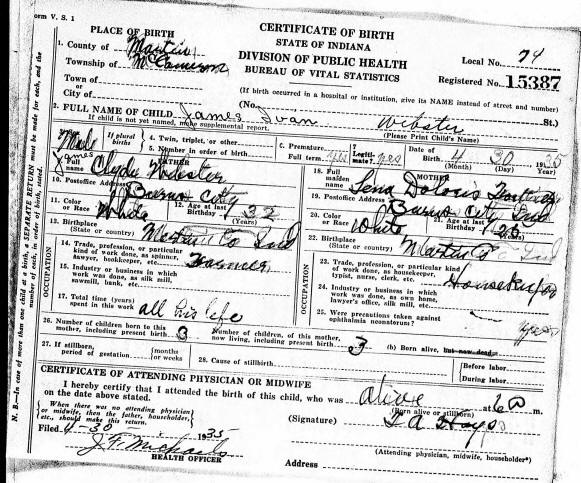 Form V. S. 1
CERTIFICATE OF BIRTH
STATE OF INDIANA
DIVISION OF PUBLIC HEALTH
BUREAU OF VITAL STATISTICS
Local No. 74
Registered No. 15387
PLACE OF BIRTH
1. County of Martin
Township of McCameron
Town of
or
City of
(If birth occurred in a hospital or institution, give its NAME instead of street and number)
(No. St.)
2. FULL NAME OF CHILD James Ivan Webster
If child is not yet named, make supplemental report. (Please Print Child's Name)
Male
If plural births
4. Twin, triplet, or other
5. Number in order of birth
6. Premature
Full term yes
7. Legitimate? yes
8. Date of Birth 4 30 1935
(Month) (Day) (Year)
FATHER
9. Full name James Clyde Webster
10. Postoffice Address Burns City
11. Color or Race White
12. Age at last Birthday 32 (Years)
13. Birthplace (State or country) Martin Co Ind
OCCUPATION
14. Trade, profession, or particular kind of work done, as spinner, sawyer, bookkeeper, etc. Farmer
15. Industry or business in which work was done, as silk mill, sawmill, bank, etc.
17. Total time (years) spent in this work all his life
MOTHER
18. Full maiden name Lena Doloris
19. Postoffice Address Burns City Ind
20. Color or Race White
21. Age at last Birthday (Years)
22. Birthplace (State or country) Martin Co Ind
OCCUPATION
23. Trade, profession, or particular kind of work done, as housekeeper, typist, nurse, clerk, etc. Housekeeper
24. Industry or business in which work was done, as own home, lawyer's office, silk mill, etc.
25. Were precautions taken against ophthalmia neonatorum? yes
26. Number of children born to this mother, including present birth 3
Number of children, of this mother, now living, including present birth 3
(b) Born alive, but now dead
27. If stillborn, period of gestation {months or weeks
28. Cause of stillbirth
{Before labor
During labor
CERTIFICATE OF ATTENDING PHYSICIAN OR MIDWIFE
I hereby certify that I attended the birth of this child, who was alive at 6 a m.
on the date above stated. (Born alive or stillborn)
{When there was no attending physician or midwife, then the father, householder, etc., should make this return.}
(Signature)
(Attending physician, midwife, householder*)
Filed 4-30- 1935
J F Michaels
HEALTH OFFICER
Address
N. B.—In case of more than one child at a birth, a SEPARATE RETURN must be made for each, and the number of each, in order of birth, stated.